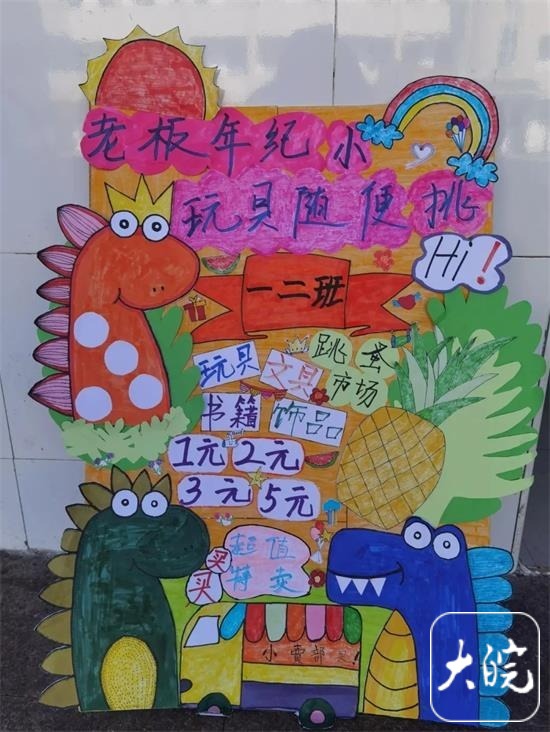 老板年纪小
玩具随便挑
Hi!
一二班
跳蚤
玩具 文具 市场
书籍 饰品
1元 2元
3元 5元
买 超值
买 特卖
小賣部
大皖